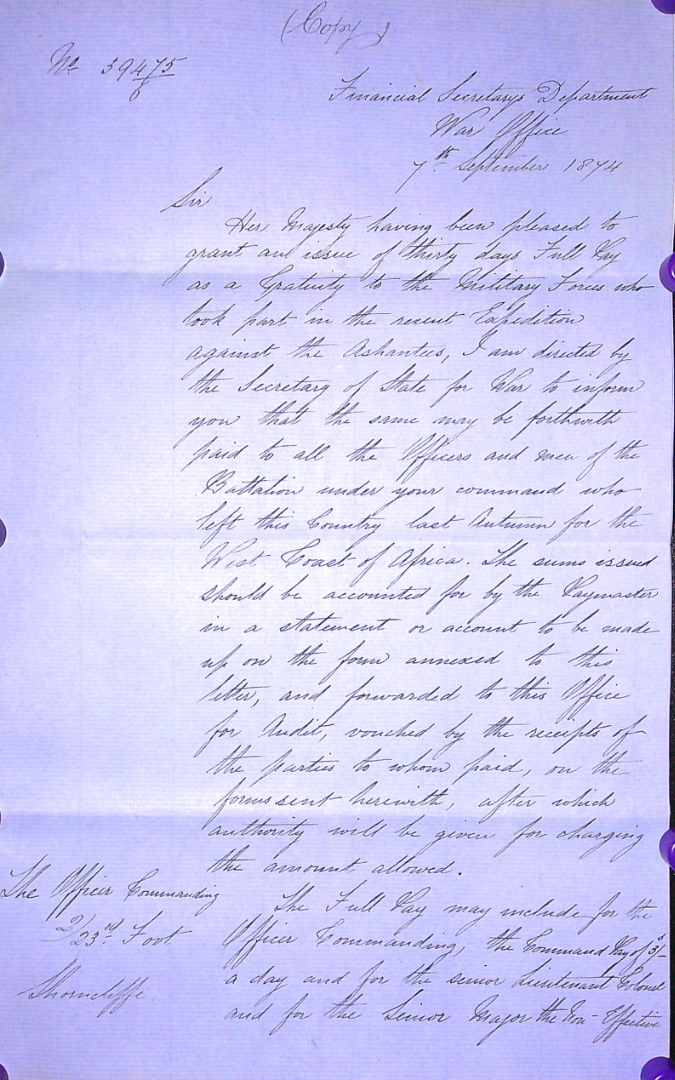 (Copy)
No 39475/6
Financial Secretarys Department
War Office
7th September 1874
Sir
Her Majesty having been pleased to
grant an issue of thirty days Full Pay
as a Gratuity to the Military Forces who
took part in the recent Expedition
against the Ashantees, I am directed by
the Secretary of State for War to inform
you that the same may be forthwith
paid to all the Officers and men of the
Battalion under your command who
left this Country last Autumn for the
West Coast of Africa. The sums issued
should be accounted for by the Paymaster
in a statement or account to be made
up on the form annexed to this
letter, and forwarded to this Office
for Audit, vouched by the receipts of
the parties to whom paid, on the
forms sent herewith, after which
authority will be given for charging
the amount allowed.
The Officer Commanding
2/23rd Foot
Shorncliffe
The Full Pay may include for the
Officer Commanding, the Command Pay of 3s/-
a day and for the senior Lieutenant Colonel
and for the Senior Major the Non-Effective